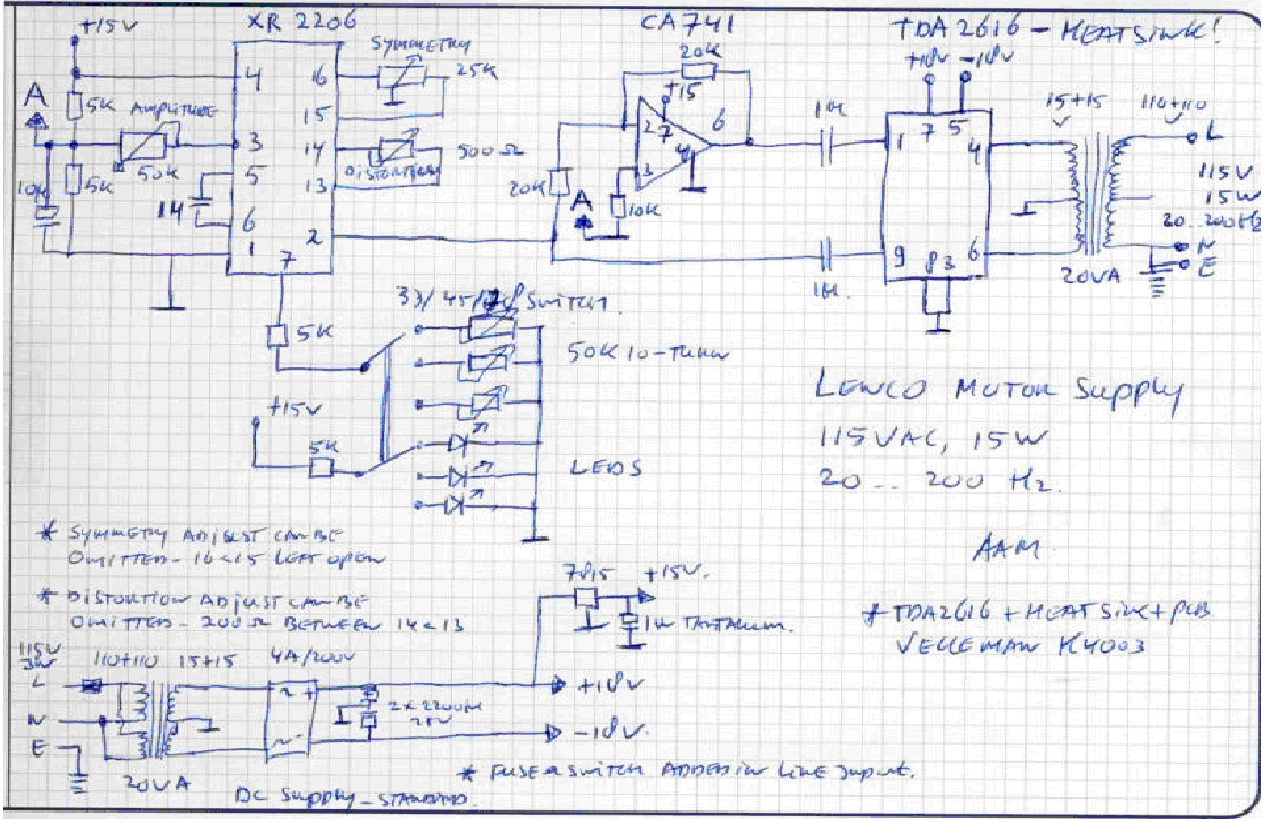 XR 2206
CA741
TDA2616 - HEATSINK!
+15V
SYMMETRY
25K
20K
+18V -18V
4
16
+15
15+15
110+110
A
5K
AMPLITUDE
15
2
7
6
1µ
1
7
5
4
L
3
14
500Ω
4
115V
50K
5
13
DISTORTION
20K
3
15W
10µ
5K
1µ
6
A
10K
20..200Hz
1
2
9
8
3
6
N
7
1µ.
20VA
E
33/45/78 SWITCH.
5K
50K 10-TURN
LENCO MOTOR SUPPLY
+15V
115VAC, 15W
5K
LEDS
20 .. 200 Hz.
* SYMMETRY ADJUST CAN BE
OMITTED - 16 & 15 LEFT OPEN
AAM
* DISTORTION ADJUST CAN BE
OMITTED - 200Ω BETWEEN 14 & 13
7815
+15V.
1µ TANTALUM.
* TDA2616 + HEATSINK + PCB
VELLEMAN K4003
115V
3W
110+110
15+15
4A/200V
L
~ +
+18V
N
2x2200µ
25V
~ -
-18V.
E
20VA
* FUSE & SWITCH ADDED IN LINE INPUT.
DC SUPPLY - STANDARD.